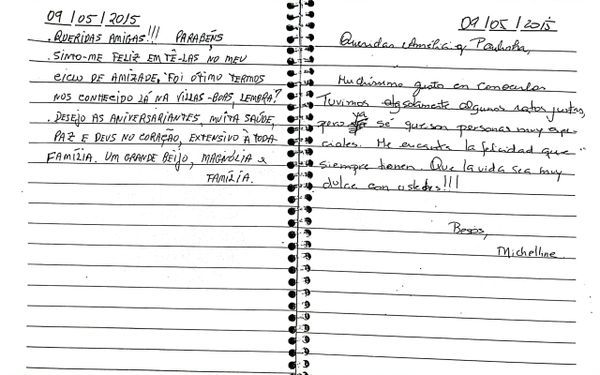 09/05/2015
.QUERIDAS AMIGAS!!! PARABÉNS
SINTO-ME FELIZ EM TÊ-LAS NO MEU
CICLO DE AMIZADE. FOI ÓTIMO TERMOS
NOS CONHECIDO LÁ NA VILLAS-BOAS, LEMBRA?
.DESEJO AS ANIVERSARIANTES, MUITA SAÚDE,
PAZ E DEUS NO CORAÇÃO, EXTENSIVO À TODA
FAMÍLIA. UM GRANDE BEIJO, MAGNÓLIA e
FAMÍLIA.
09/05/2015
Queridas Amélia y Paulinha,
Muchíssimo gusto en conocerlas
Tuvimos algunos ratos juntas,
pero ya sé que son personas muy espe-
ciales. Me encanta la felicidad que
siempre tienen. Que la vida sea muy
dulce con ustedes!!!
Besos,
Michelline